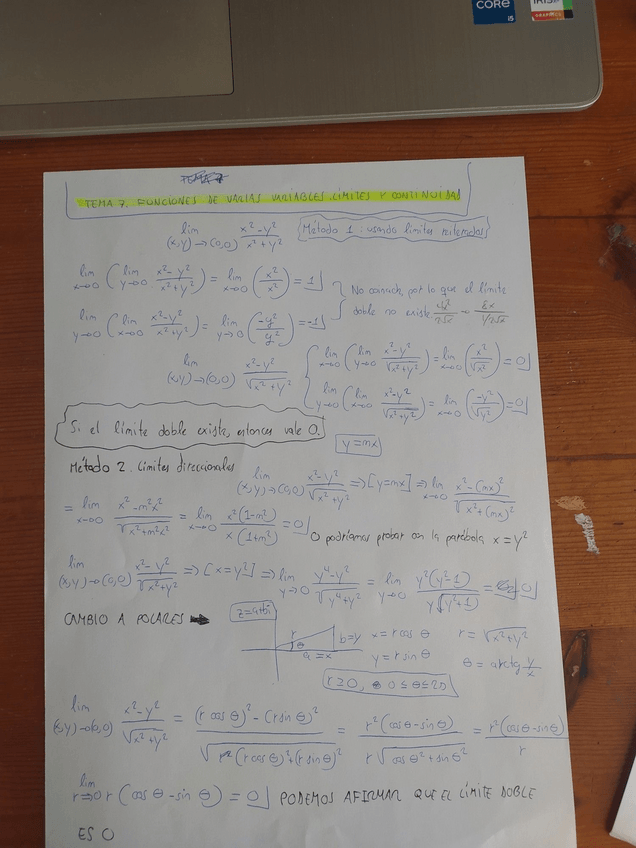 CORE
i5
TEMA 7. FUNCIONES DE VARIAS VARIABLES. LÍMITES Y CONTINUIDAD
lim (x,y)→(0,0) x²-y² / x²+y²
Método 1: usando límites reiterados
lim x→0 ( lim y→0 x²-y² / x²+y² ) = lim x→0 ( x² / x² ) = 1
lim y→0 ( lim x→0 x²-y² / x²+y² ) = lim y→0 ( -y² / y² ) = -1
No coincide, por lo que el límite
doble no existe.
lim (x,y)→(0,0) x²-y² / √x²+y²
lim x→0 ( lim y→0 x²-y² / √x²+y² ) = lim x→0 ( x² / √x² ) = 0
lim y→0 ( lim x→0 x²-y² / √x²+y² ) = lim y→0 ( -y² / √y² ) = 0
Si el límite doble existe, entonces vale 0.
y=mx
Método 2. Límites direccionales
lim (x,y)→(0,0) x²-y² / √x²+y² => [y=mx] => lim x→0 x²-(mx)² / √x²+(mx)²
= lim x→0 x²-m²x² / √x²+m²x² = lim x→0 x²(1-m²) / x(1+m²) = 0
O podríamos probar con la parábola x=y²
lim (x,y)→(0,0) x²-y² / √x²+y² => [x=y²] => lim y→0 y⁴-y² / √y⁴+y² = lim y→0 y²(y²-1) / y√(y²+1) = 0
CAMBIO A POLARES
z=a+bi
r
θ
b=y
a=x
x=r cos θ
y=r sin θ
r=√x²+y²
θ=arctg y/x
r≥0, 0≤θ≤2π
lim (x,y)→(0,0) x²-y² / √x²+y² = (r cos θ)²-(r sin θ)² / √(r cos θ)²+(r sin θ)² = r²(cos θ-sin θ) / r√cos θ²+sin θ² = r²(cos θ-sin θ) / r
lim r→0 r (cos θ-sin θ) = 0 PODEMOS AFIRMAR QUE EL LÍMITE DOBLE
ES 0